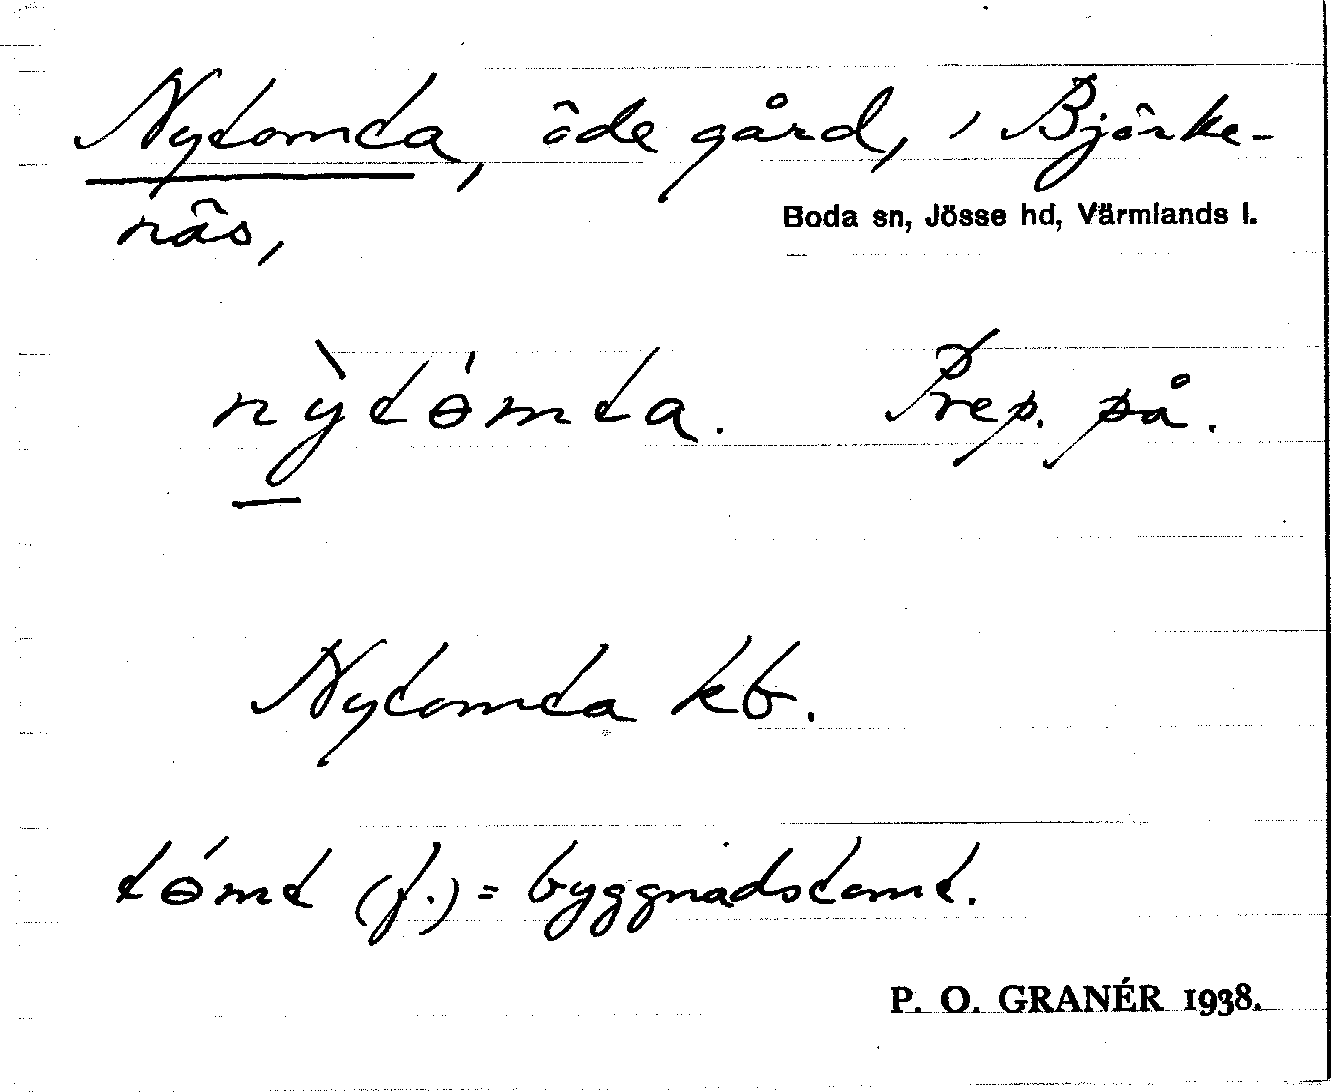 Nytomta, öde gård, i Björke-
näs,
Boda sn, Jösse hd, Värmlands l.
nỳtɵ́mta. Prep. på.
Nytomta kb.
tɵ́mt (f.) = byggnadstomt.
P. O. GRANÉR 1938.